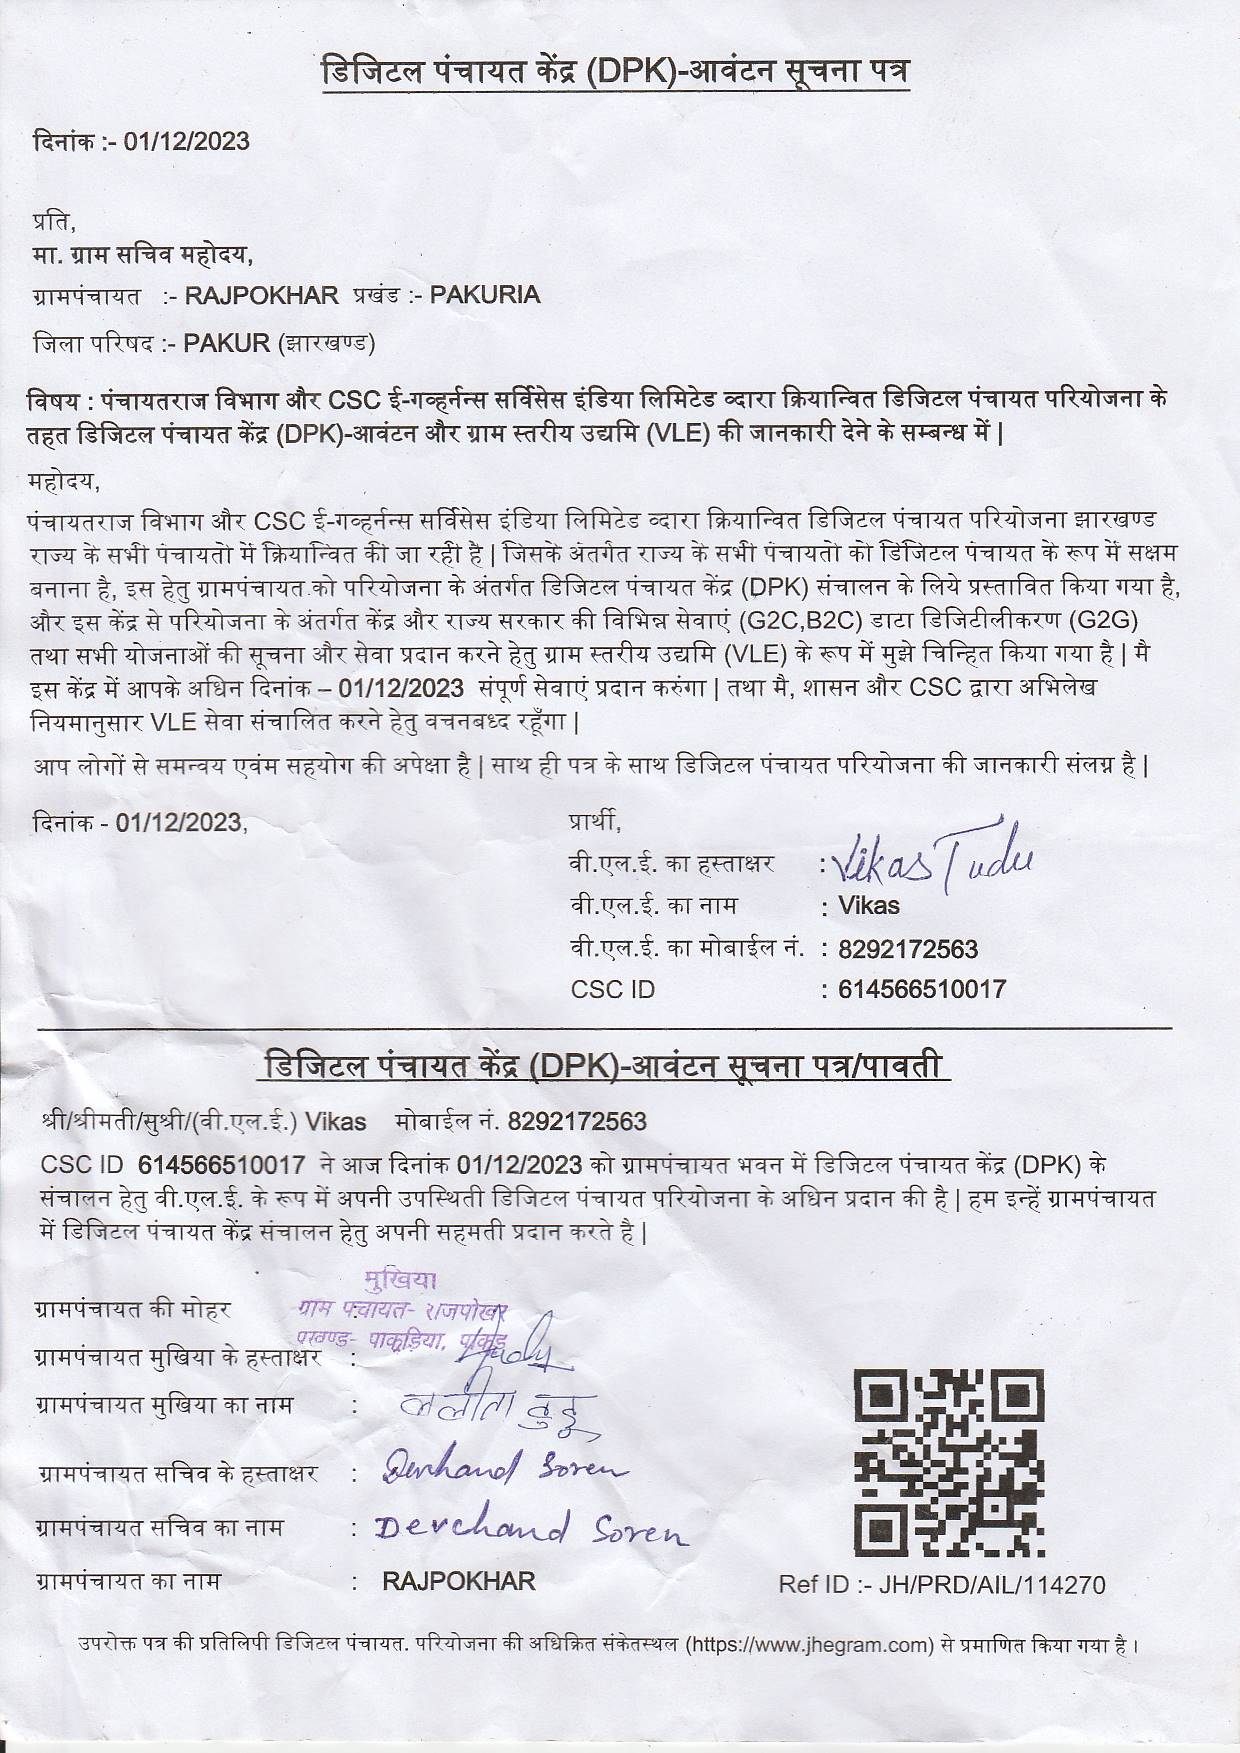 डिजिटल पंचायत केंद्र (DPK)-आवंटन सूचना पत्र
दिनांक :- 01/12/2023
प्रति,
मा. ग्राम सचिव महोदय,
ग्रामपंचायत :- RAJPOKHAR प्रखंड :- PAKURIA
जिला परिषद :- PAKUR (झारखण्ड)
विषय : पंचायतराज विभाग और CSC ई-गव्हर्नन्स सर्विसेस इंडिया लिमिटेड व्दारा क्रियान्वित डिजिटल पंचायत परियोजना के
तहत डिजिटल पंचायत केंद्र (DPK)-आवंटन और ग्राम स्तरीय उद्यमि (VLE) की जानकारी देने के सम्बन्ध में |
महोदय,
पंचायतराज विभाग और CSC ई-गव्हर्नन्स सर्विसेस इंडिया लिमिटेड व्दारा क्रियान्वित डिजिटल पंचायत परियोजना झारखण्ड
राज्य के सभी पंचायतो में क्रियान्वित की जा रही है | जिसके अंतर्गत राज्य के सभी पंचायतो को डिजिटल पंचायत के रूप में सक्षम
बनाना है, इस हेतु ग्रामपंचायत.को परियोजना के अंतर्गत डिजिटल पंचायत केंद्र (DPK) संचालन के लिये प्रस्तावित किया गया है,
और इस केंद्र से परियोजना के अंतर्गत केंद्र और राज्य सरकार की विभिन्न सेवाएं (G2C,B2C) डाटा डिजिटीलीकरण (G2G)
तथा सभी योजनाओं की सूचना और सेवा प्रदान करने हेतु ग्राम स्तरीय उद्यमि (VLE) के रूप में मुझे चिन्हित किया गया है | मै
इस केंद्र में आपके अधिन दिनांक – 01/12/2023 संपूर्ण सेवाएं प्रदान करुंगा | तथा मै, शासन और CSC द्वारा अभिलेख
नियमानुसार VLE सेवा संचालित करने हेतु वचनबध्द रहूँगा |
आप लोगों से समन्वय एवंम सहयोग की अपेक्षा है | साथ ही पत्र के साथ डिजिटल पंचायत परियोजना की जानकारी संलग्न है |
दिनांक - 01/12/2023,
प्रार्थी,
वी.एल.ई. का हस्ताक्षर : Vikas Tudu
वी.एल.ई. का नाम : Vikas
वी.एल.ई. का मोबाईल नं. : 8292172563
CSC ID : 614566510017
डिजिटल पंचायत केंद्र (DPK)-आवंटन सूचना पत्र/पावती
श्री/श्रीमती/सुश्री/(वी.एल.ई.) Vikas मोबाईल नं. 8292172563
CSC ID 614566510017 ने आज दिनांक 01/12/2023 को ग्रामपंचायत भवन में डिजिटल पंचायत केंद्र (DPK) के
संचालन हेतु वी.एल.ई. के रूप में अपनी उपस्थिती डिजिटल पंचायत परियोजना के अधिन प्रदान की है | हम इन्हें ग्रामपंचायत
में डिजिटल पंचायत केंद्र संचालन हेतु अपनी सहमती प्रदान करते है |
मुखिया
ग्रामपंचायत की मोहर : ग्राम पंचायत- राजपोखर
प्रखण्ड- पाकुड़िया, पाकुड़
ग्रामपंचायत मुखिया के हस्ताक्षर :
ग्रामपंचायत मुखिया का नाम : ललीता टुडू
ग्रामपंचायत सचिव के हस्ताक्षर : Devchand Soren
ग्रामपंचायत सचिव का नाम : Devchand Soren
ग्रामपंचायत का नाम : RAJPOKHAR
Ref ID :- JH/PRD/AIL/114270
उपरोक्त पत्र की प्रतिलिपी डिजिटल पंचायत. परियोजना की अधिक्रित संकेतस्थल (https://www.jhegram.com) से प्रमाणित किया गया है ।